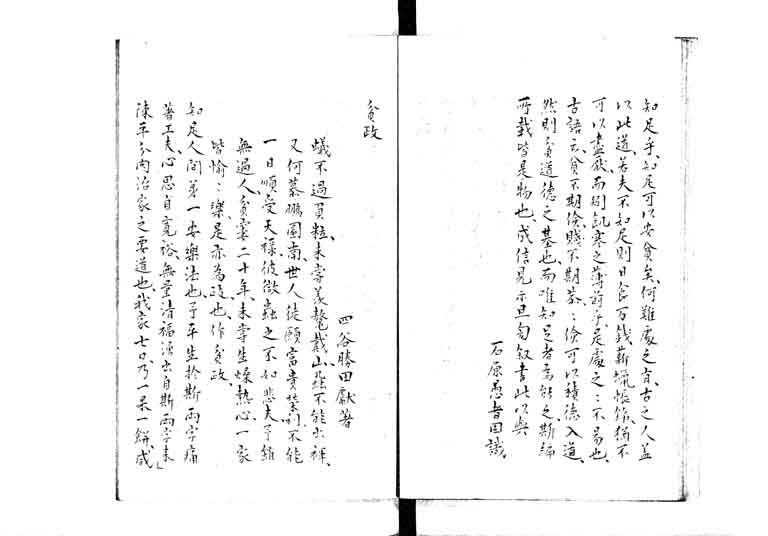 知足乎、知足可以安貧矣、何難處之有、古之人蓋
以此道、若夫不知足則日食万錢、薪蠟帳飾、猶不
可以盡厭、而矧飢寒之薄荷乎、是處之之不易也、
古語云、貧不期儉、賤不期恭、恭儉可以積德入道、
然則貧道德之基也、而唯知足者為能之、斯編
所載皆是物也、成信見示且句叙書此以與
石原愚者因識、
貧政
四谷勝田獻著
蟻不過負粒、未嘗羨鼇戴山、蝨不能出褌、
又何慕鵬圖南、世人徒願富貴榮利、不能
一日順受天祿、彼微蟲之不如、悲夫、予雖
無過人、貧窶二十年、未嘗生燥熱心、一家
皆愉愉樂、是亦為政也、作貧政、
知足人間第一安樂法也、予平生於斯兩字痛
著工夫、心思自寬裕、無量清福湧出自斯兩字来、
陳平分肉治家之要道也、我家七口乃一果一餅、咸